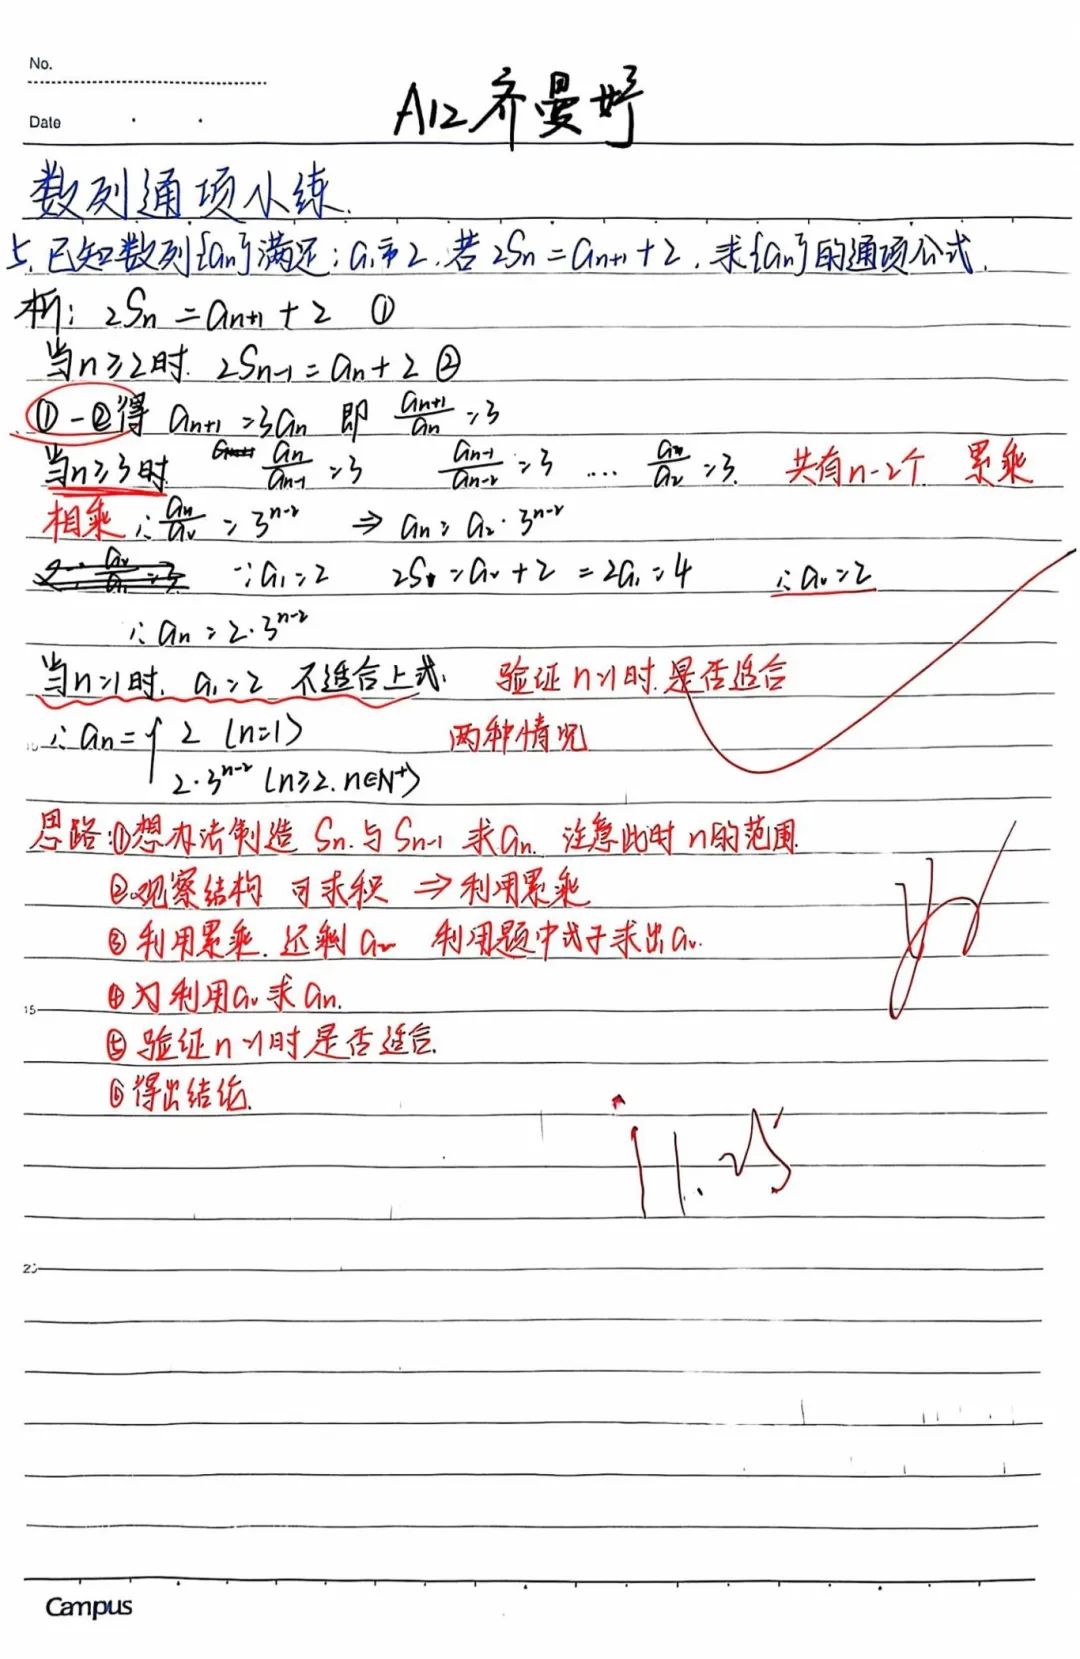 No.
Date
A12 齐曼妤
数列通项小练.
5. 已知数列{an}满足: a1=2. 若 2Sn=an+1+2. 求{an}的通项公式.
析: 2Sn=an+1+2 ①
当n≥2时. 2Sn-1=an+2 ②
①-②得 an+1=3an 即 an+1/an=3
当n≥3时 an/an-1=3 an-1/an-2=3 ... a3/a2=3. 共有n-2个 累乘
相乘 ∴an/a2=3^n-2 ⇒ an=a2·3^n-2
∵a1=2 2S1=a2+2=2a1=4 ∴a2=2
∴an=2·3^n-2
当n=1时. a1=2 不适合上式. 验证n=1时.是否适合
∴an={ 2 (n=1) 两种情况
2·3^n-2 (n≥2.n∈N+)
思路:①想办法制造 Sn.与Sn-1 求an. 注意此时n的范围.
②观察结构 可求积 ⇒利用累乘
③利用累乘.还剩a2 利用题中式子求出a2.
④为利用a2求an.
⑤验证n=1时是否适合.
⑥得出结论.
11.25
15
Campus